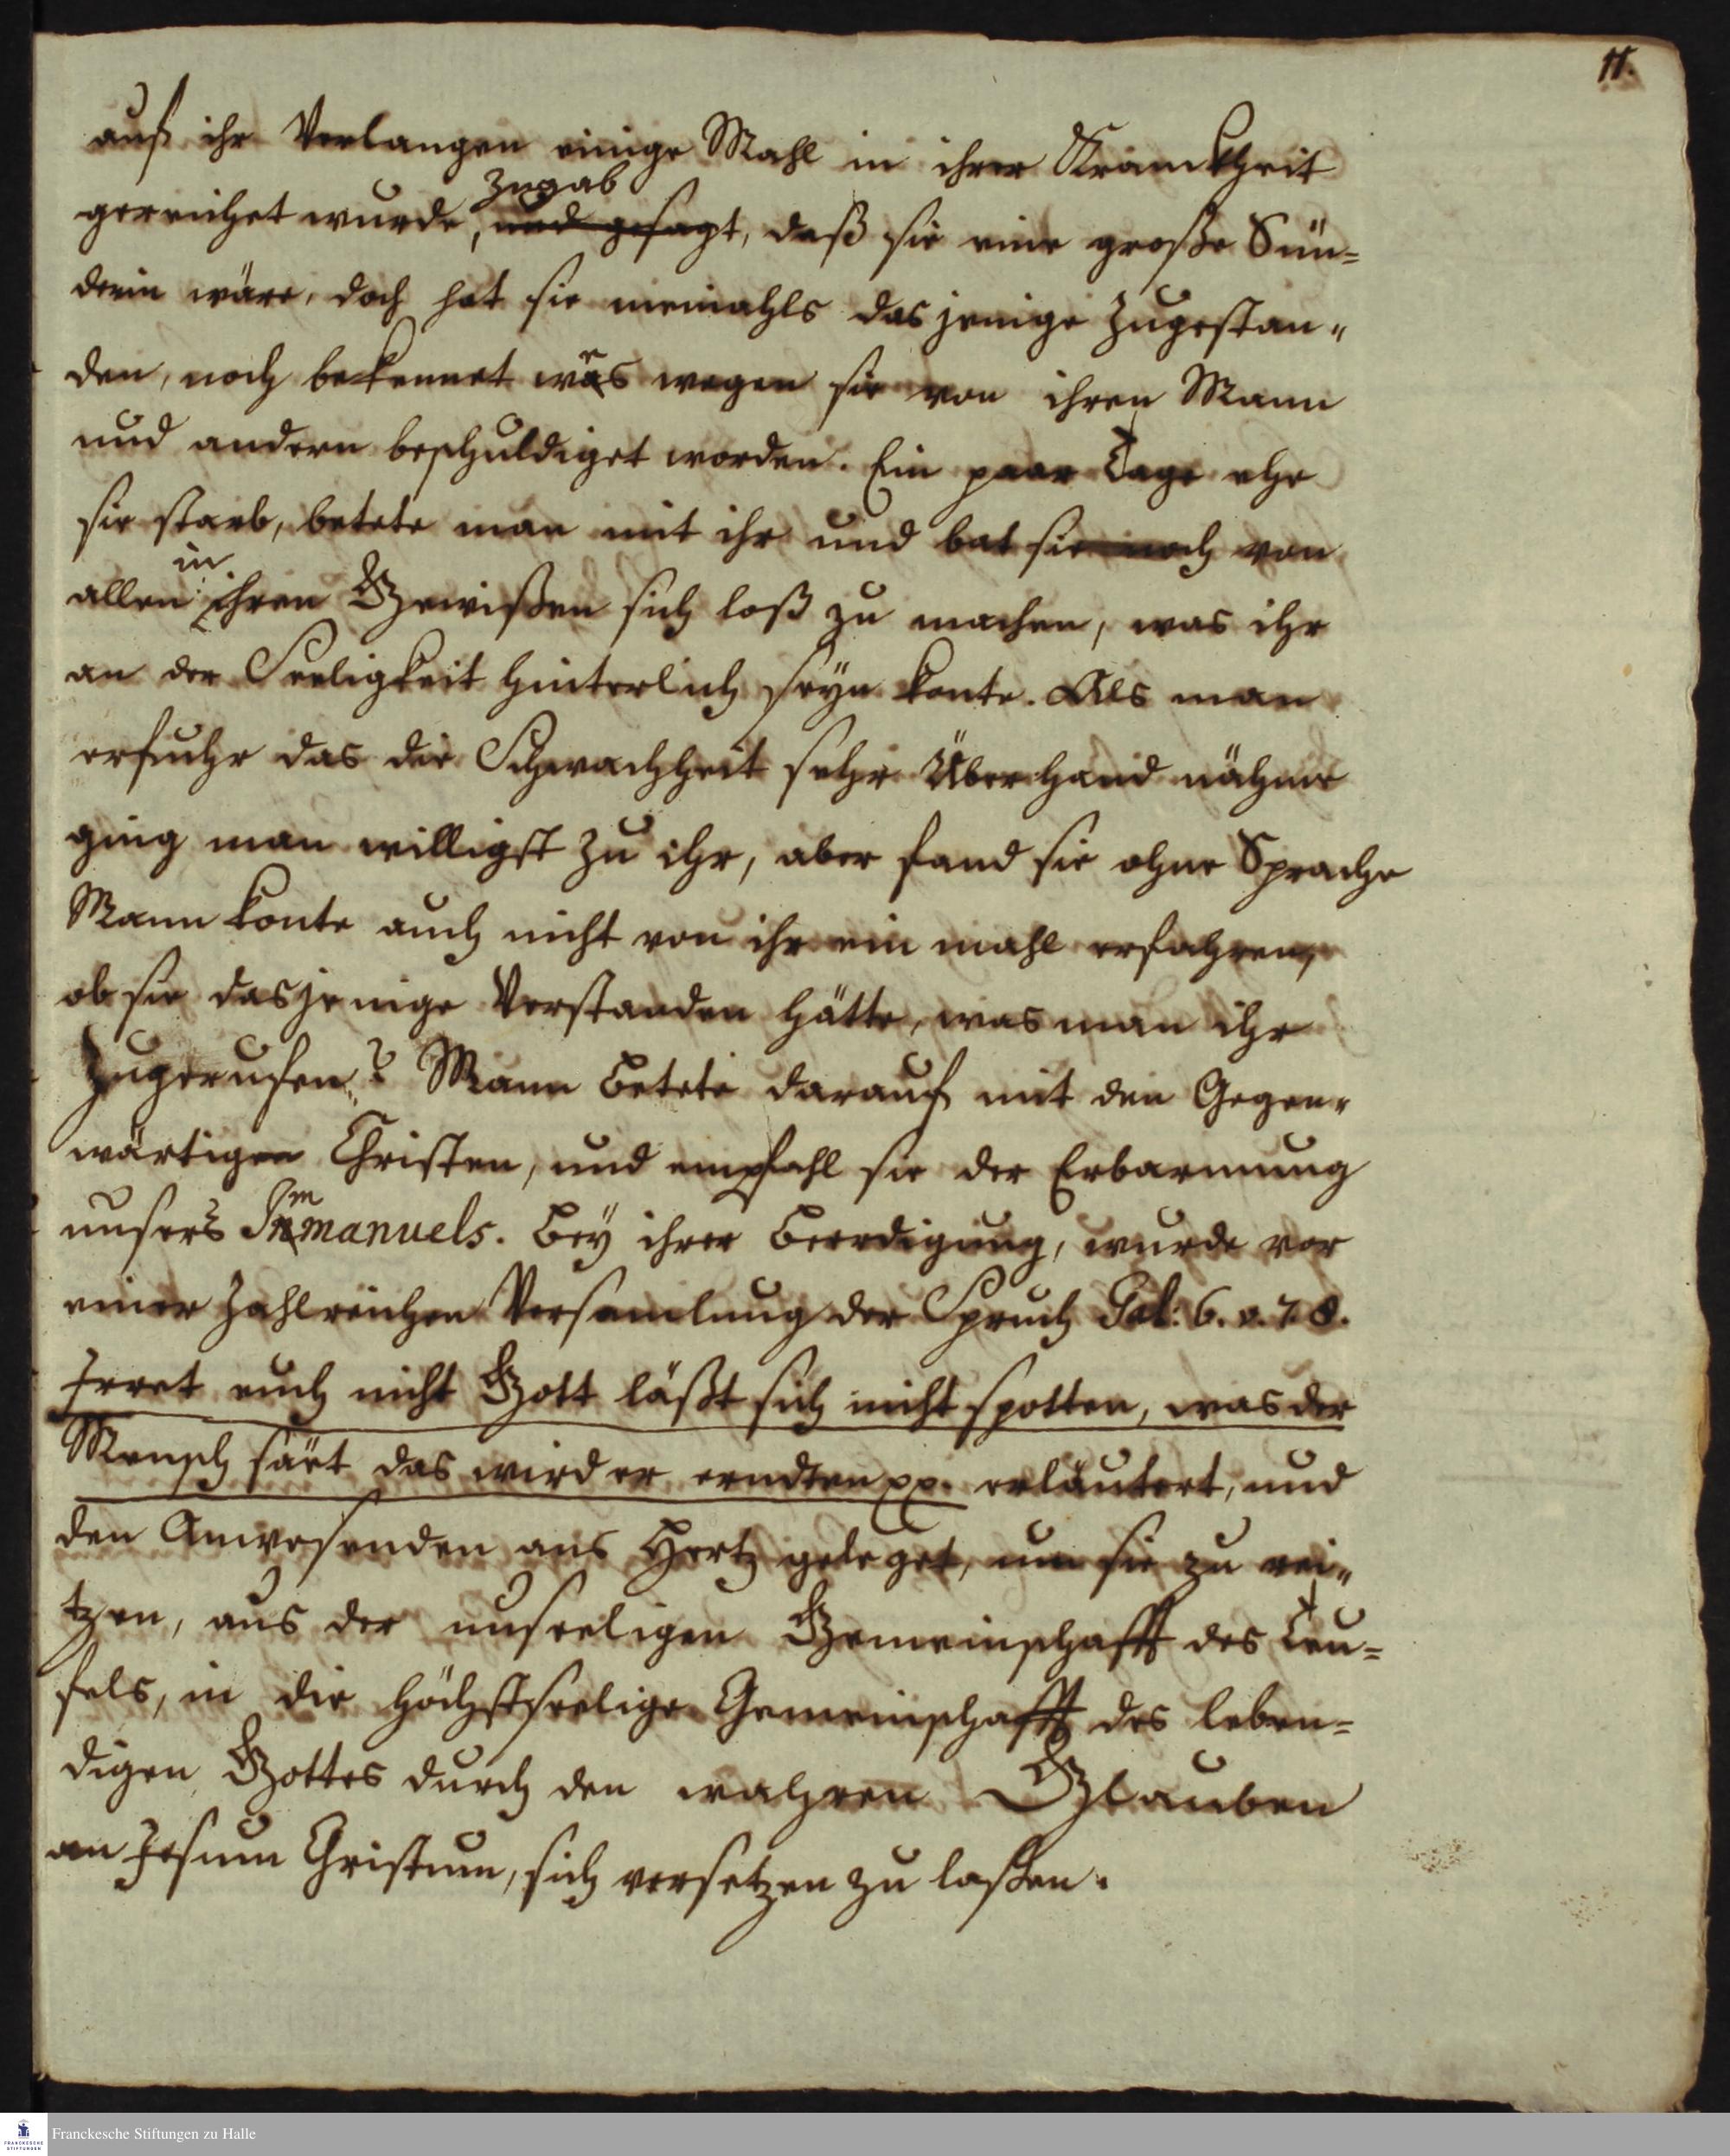 11.
auf ihr Verlangen einige Mahl in ihrer Kranckheit
zugab
gereichet wurde, und gesagt, daß sie eine große Sün=
derin wäre, doch hat sie niemahls das jenige zugestan=
den, noch bekennet wes wegen sie von ihren Mann
und andern beschuldiget worden. Ein paar Tage ehe
sie starb, betete man mit ihr und bat sie noch von
in
allen ihren Gewißen sich loß zu machen, was ihr
an der Seeligkeit hinterlich seyn konte. Als man
erfuhr das die Schwachheit sehr Überhand nähme
ging man willigst zu ihr, aber fand sie ohne Sprache
Mann konte auch nicht von ihr ein mahl erfahren,
ob sie dasjenige Verstanden hätte, was man ihr
zugerufen? Mann betete darauf mit den Gegen=
wärtigen Christen, und empfahl sie der Erbarmung
unsers Immanuels. Bey ihrer Beerdigung, wurde vor
einer Zahlreichen Versamlung der Spruch Gal: 6. v. 7. 8.
Irret euch nicht Gott läßt sich nicht spotten, was der
Mensch säet das wird er erndten pp. erläutert, und
den Anwesenden ans Hertz geleget, um sie zu rei=
tzen, aus der unseeligen Gemeinschafft des Teu=
fels, in die höchstseelige Gemeinschafft des leben=
digen Gottes durch den wahren Glauben
an Jesum Christum, sich versetzen zu laßen.
Franckesche Stiftungen zu Halle
FRANCKESCHE
STIFTUNGEN